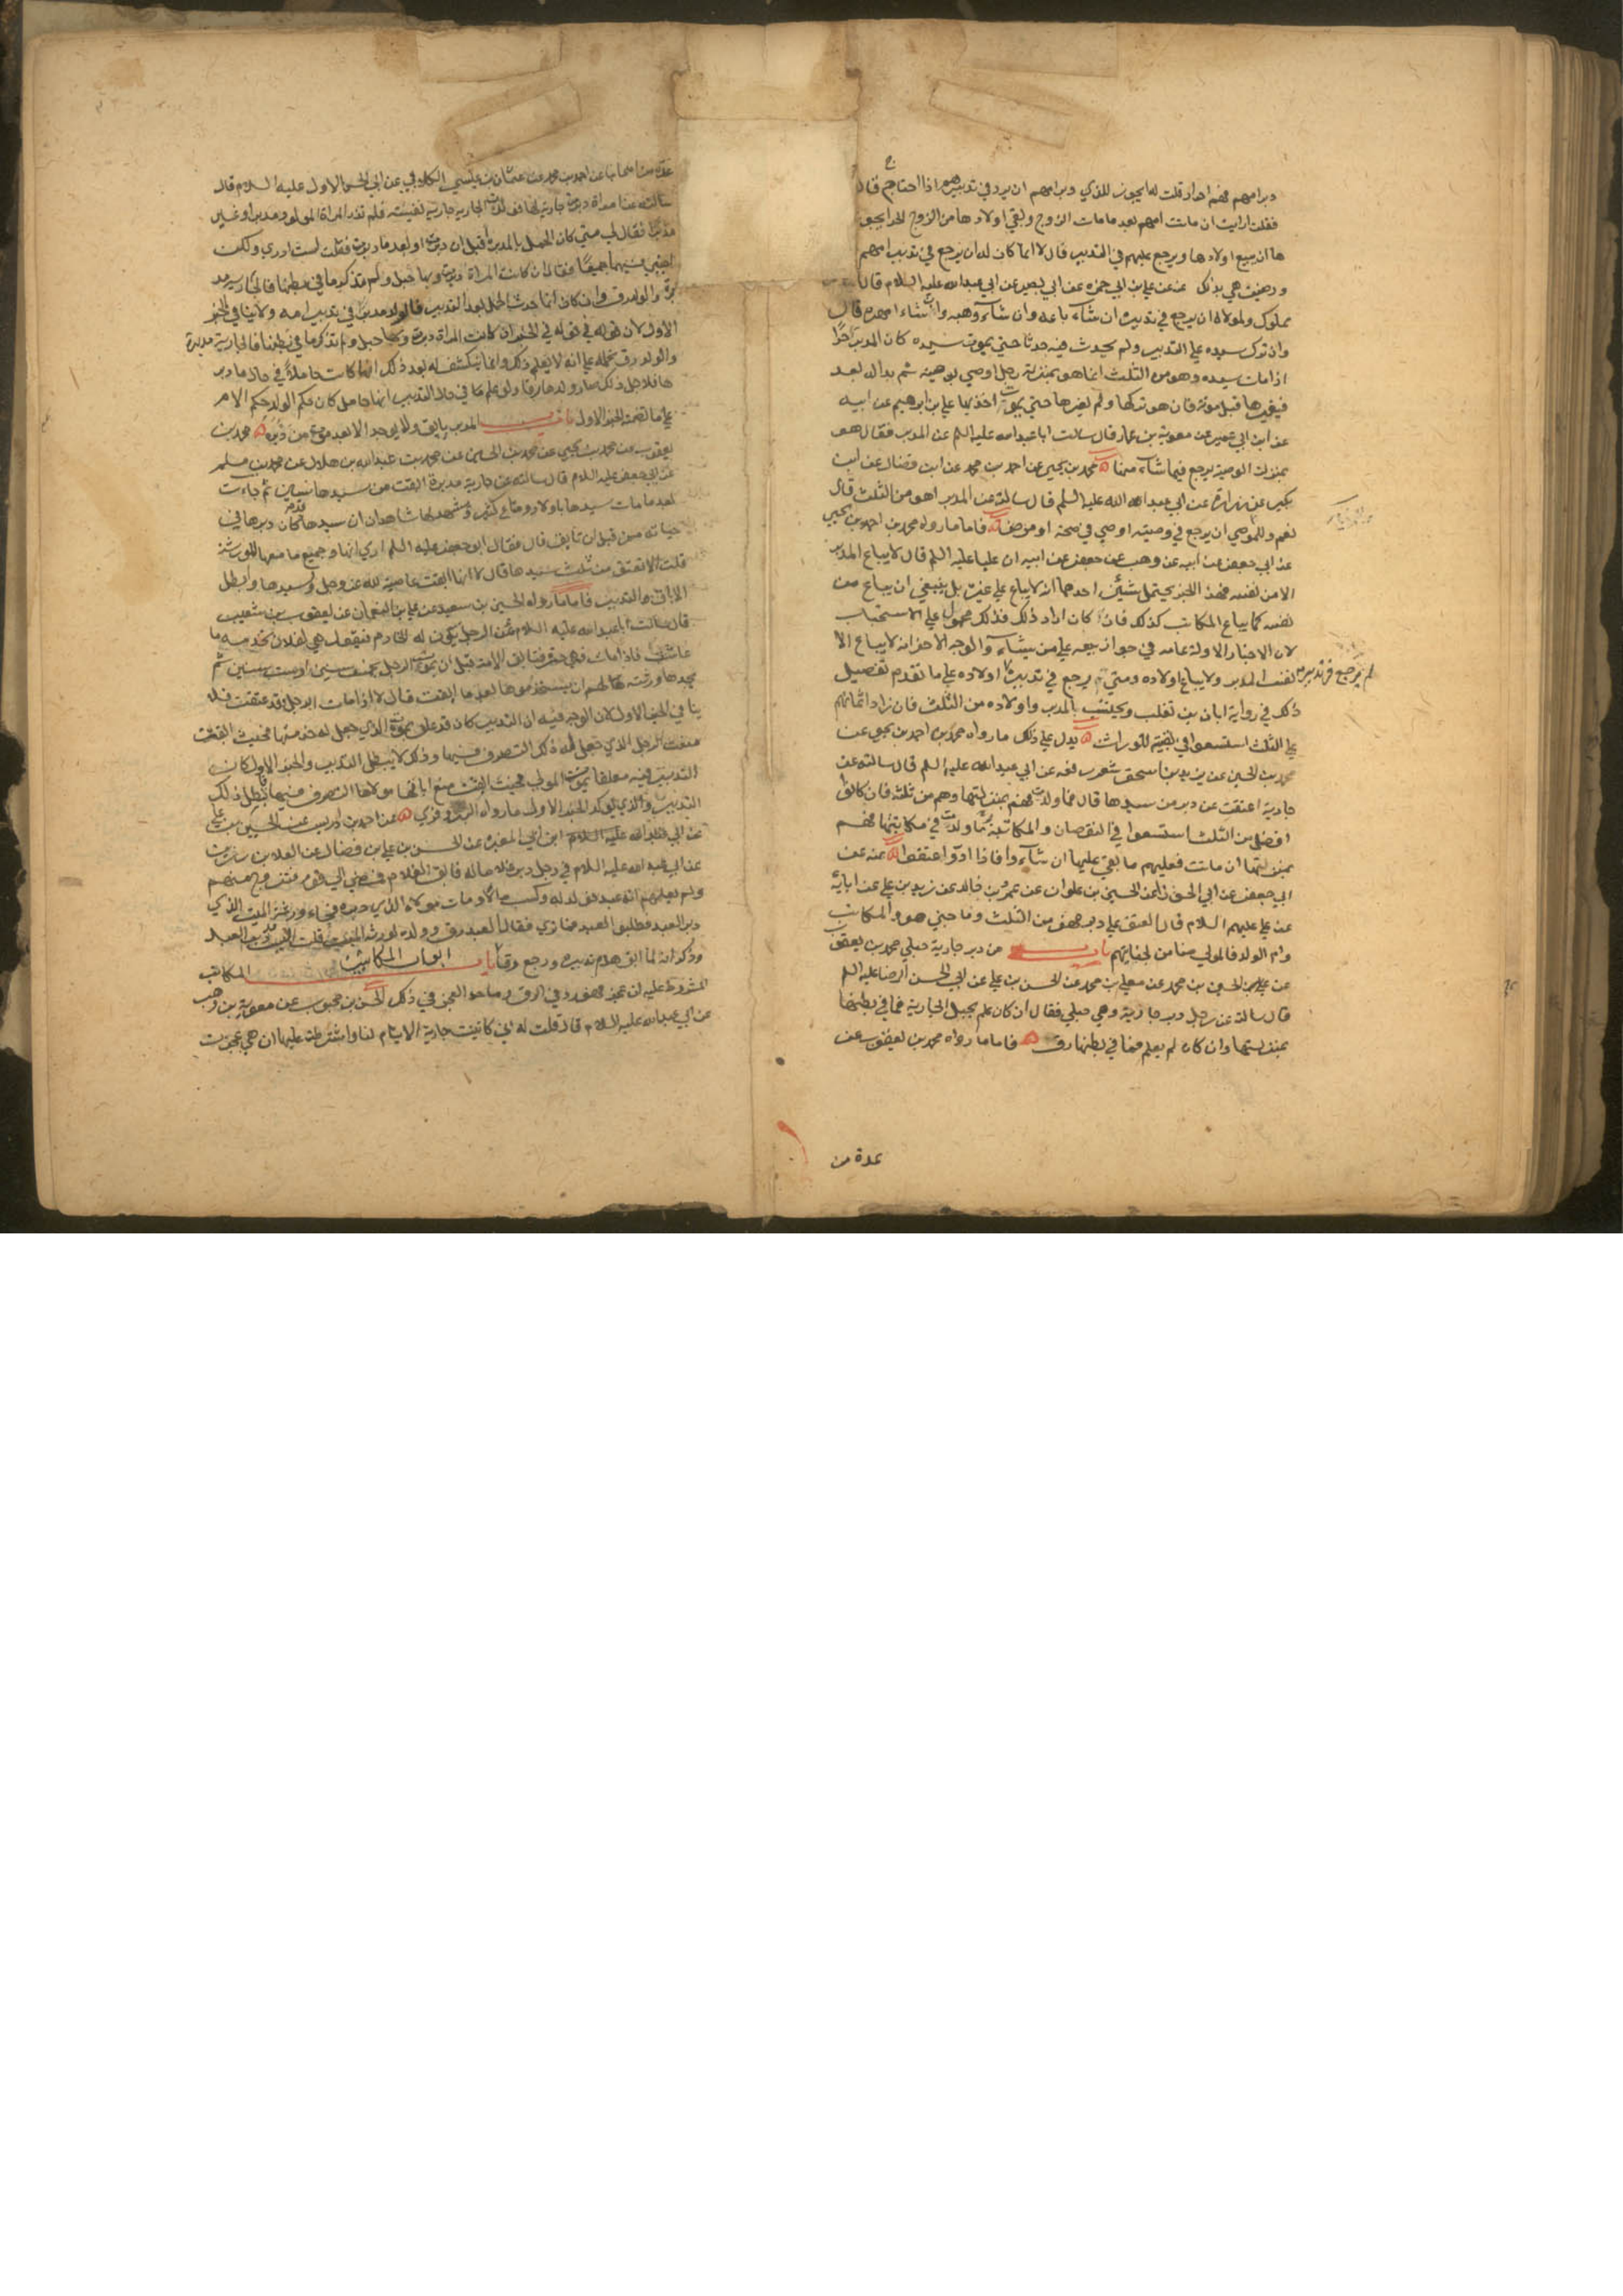 دبر امهم فهم احرار قلت له ايجوز للذي دبر امهم ان يرد في تدبيره اذا احتاج قال
فقلت ارايت ان ماتت امهم بعد ما مات الزوج وبقي اولادها من الزوج الحر ايجوز
ها ان يبيع اولادها ويرجع عليهم في التدبير قال لا انما كان له ان يرجع في تدبير امهم
ورضيت هي بذلك عنه عن علي بن ابي حمزه عن ابي بصير عن ابي عبدالله عليه السلام قال
مملوك ولمولاه ان يرجع في تدبيره ان شاء باعه وان شاء وهبه وان شاء امهره قال
وان ترك سيده علي التدبير ولم يحدث فيه حدثا حتي يموت سيده كان المدبر حرا
اذا مات سيده وهو من الثلث انما هو بمنزلة رجل اوصي بوصية ثم بدا له بعد
فيغيرها قبل موته فان هو تركها ولم يغيرها حتي يموت اخذ بها علي بن ابرهيم عن ابيه
عن ابن ابي عمير عن معوية بن عمار قال سالت ابا عبدالله عليه السلم عن المدبر فقال هو
بمنزلة الوصية يرجع فيما شاء منها محمد بن يحيي عن احمد بن محمد عن ابن فضال عن ابن
بكير عن زرارة عن ابي عبدالله عليه السلم قال سالته عن المدبر اهو من الثلث قال
نعم وللموصي ان يرجع في وصيته اوصي في صحة او مرض فاما ما رواه محمد بن احمد بن يحيي
عن ابي جعفر عن ابيه عن وهب عن جعفر عن ابيه ان عليا عليه السلم قال لا يباع المدبر
الا من نفسه فهذا الخبر يحتمل شيئين احدهما انه لا يباع علي غيره بل ينبغي ان يباع من
نفسه كما يباع المكاتب كذلك فان كان اراد ذلك فذلك محمول علي الاستحباب
لان الاخبار الاولة عامه في جواز بيعه علي من يشاء والوجه الاخر انه لا يباع الا
لم يرجع في تدبيره
نفس المدبر ولا يباع اولاده ومتي يرجع في تدبير اولاده علي ما تقدم تفصيل
ذلك في رواية ابان بن تغلب ويحتسب بالمدبر واولاده من الثلث فان زاد اثمانهم
علي الثلث استسعوا في بقيته للوراث يدل علي ذلك ما رواه محمد بن احمد بن يحيي عن
محمد بن الحسين عن يزيد بن اسحق شعر رفعه عن ابي عبدالله عليه السلم قال سالته عن
جارية اعتقت عن دبر من سيدها قال فما ولدت فهم بمنزلتها وهم من ثلثه فان كانوا
افضل من الثلث استسعوا في النقصان والمكاتبة ما ولدت في مكاتبتها فهم
بمنزلتها ان ماتت فعليهم ما بقي عليها ان شاءوا فاذا ادوا عتقوا عنه عن
ابي جعفر عن ابي الجوزا عن الحسين بن علوان عن عمرو بن خالد عن زيد بن علي عن ابائه
عن علي عليهم السلام قال المعتق علي دبر فهو من الثلث وما جني هو والمكاتب
وام الولد فالمولي ضامن لجنايتهم باب من دبر جارية حبلي محمد بن يعقوب
عن الحسين بن محمد عن معلي بن محمد عن الحسن بن علي عن ابي الحسن الرضا عليه السلم
قال سالته عن رجل دبر جارية وهي حبلي فقال ان كان علم بحبل الجارية فما في بطنها
بمنزلتها وان كان لم يعلم فما في بطنها رق فاما ما رواه محمد بن يعقوب عن
عدة من
عدة من اصحابنا عن احمد بن محمد عن عثمان بن عيسي الكلابي عن ابي الحسن الاول عليه السلام قال
سالته عن امراة دبرت جارية لها فولدت الجارية جارية نفيسة فلم تدر المراة المولود مدبر او غير
مدبر فقال لي متي كان الحمل بالمدبرة اقبل ان دبرت او بعد ما دبرت فقلت لست ادري ولكن
اجبني فيهما جميعا فقال ان كانت المراة دبرت وبها حبل ولم تذكر ما في بطنها فالجارية مد
برة والولد رق وان كان انما حدث الحمل بعد التدبير فالولد مدبر في تدبير امه ولا ينافي الخبر
الاول لان قوله في الخبر ان كانت المراة دبرت وبها حبل ولم تذكر ما في بطنها فالجارية مدبرة
والولد رق نحمله علي انه لا يعلم ذلك وانما ينكشف له بعد ذلك انها كانت حاملا في حال ما دبر
ها فلاجل ذلك صار ولدها رقا ولو علم في حال التدبير انها حامل كان حكم الولد حكم الام
علي ما تضمنه الخبر الاول باب المدبر يابق ولا يوجد الا بعد موت من دبره محمد بن
يعقوب عن محمد بن يحيي عن محمد بن الحسين عن محمد بن عبدالله بن هلال عن محمد بن مسلم
عن ابي جعفر عليه السلام قال سالته عن جارية مدبرة ابقت من سيدها سنين ثم جاءت
بعد ما مات سيدها باولاد ومتاع كثير وشهد لها شاهدان ان سيدها كان دبرها في
حياته من قبل ان تابق قال فقال ابو جعفر عليه السلم اري انها وجميع ما معها للورثة
قلت لا تعتق من ثلث سيدها قال لا انها ابقت عاصية لله عز وجل ولسيدها وابطل
الاباق التدبير فاما ما رواه الحسين بن سعيد عن علي بن النعمان عن يعقوب بن شعيب
قال سالت ابا عبدالله عليه السلام عن الرجل يكون له الخادم فيقول هي لفلان تخدمه ما
عاش فاذا مات فهي حرة فتابق الامة قبل ان يموت الرجل بخمس سنين او ست سنين ثم
يجدها ورثته الهم ان يستخدموها بعد ما ابقت قال لا اذا مات الرجل فقد عتقت فلا
ينافي الخبر الاول لان الوجه فيه ان التدبير كان قد علق بموت الذي جعل له خدمتها فحيث ابقت
منعت الرجل الذي جعل له ذلك التصرف فيها وذلك لا يبطل التدبير والخبر الاول كان
التدبير فيه معلقا بموت المولي فحيث ابقت منع اباقها مولاها التصرف فيها فبطل ذلك
التدبير والذي يؤكد الخبر الاول ما رواه البزوفري عن احمد بن ادريس عن الحسين بن علي
عن ابي عبدالله عليه السلام ابن ابي المغيره عن الحسن بن علي بن فضال عن العلا بن رزين
عن ابي عبدالله عليه السلام في رجل دبر غلاما له فابق الغلام فمضي الي قوم فتزوج منهم
ولم يعلمهم انه عبد فولد له وكسب مالا ومات مولاه الذي دبره فجاء ورثة الميت الذي
دبر العبد فطلبوا العبد فما تري فقال العبد رق وولده لورثة الميت قلت اليس قد دبر العبد
وذكر انه لما ابق هدم تدبيره ورجع رقا ابواب المكاتبين باب المكاتب
المشروط عليه ان عجز فهو رد في الرق وما حد العجز في ذلك الحسن بن محبوب عن معوية بن وهب
عن ابي عبدالله عليه السلام قال قلت له اني كاتبت جارية لايتام لنا واشترطت عليها ان هي عجزت